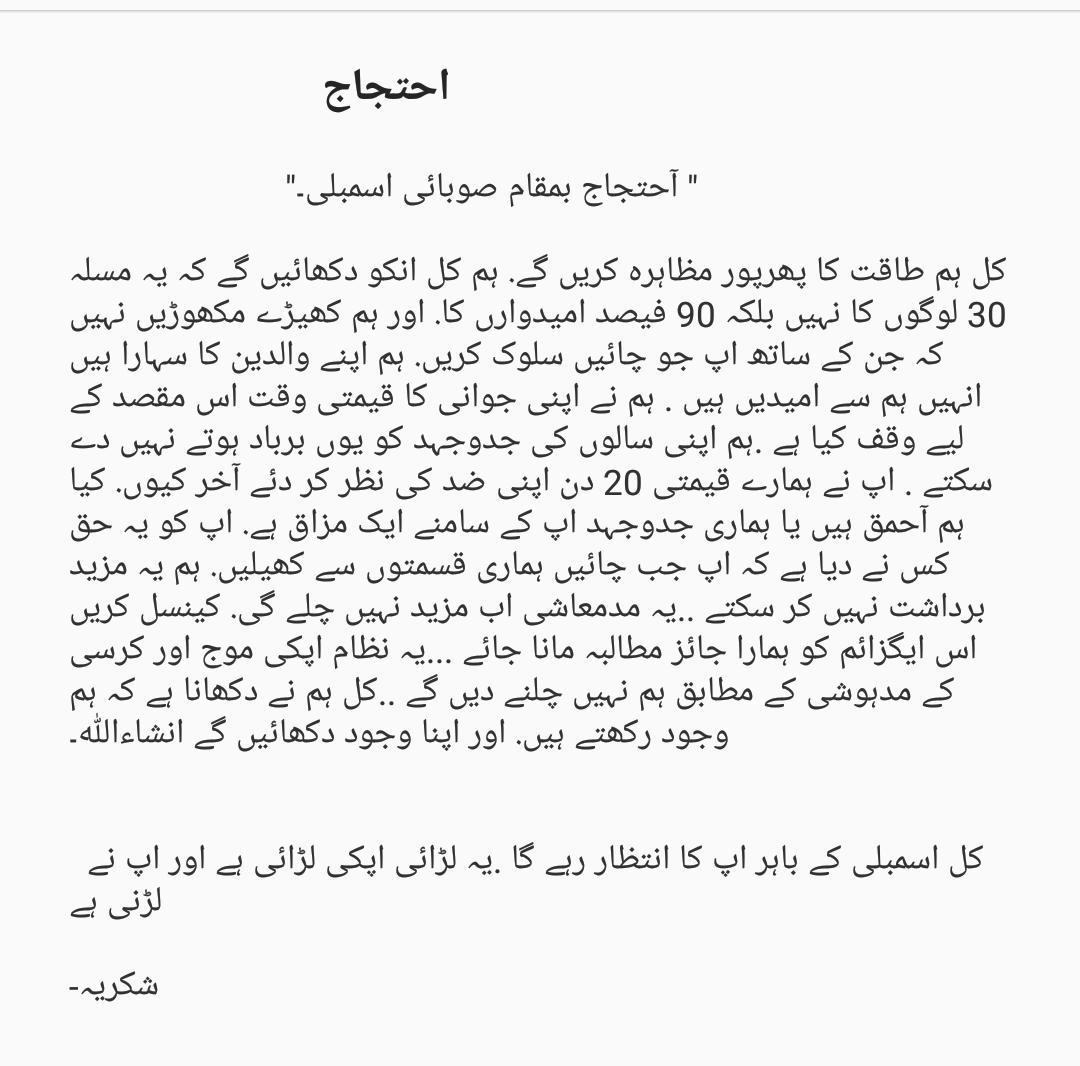 احتجاج
" آحتجاج بمقام صوبائی اسمبلی۔"
کل ہم طاقت کا پھرپور مظاہرہ کریں گے. ہم کل انکو دکھائیں گے کہ یہ مسلہ
30 لوگوں کا نہیں بلکہ 90 فیصد امیدوارں کا. اور ہم کھیڑے مکھوڑیں نہیں
کہ جن کے ساتھ اپ جو چائیں سلوک کریں. ہم اپنے والدین کا سہارا ہیں
انہیں ہم سے امیدیں ہیں . ہم نے اپنی جوانی کا قیمتی وقت اس مقصد کے
لیے وقف کیا ہے .ہم اپنی سالوں کی جدوجہد کو یوں برباد ہوتے نہیں دے
سکتے . اپ نے ہمارے قیمتی 20 دن اپنی ضد کی نظر کر دئے آخر کیوں. کیا
ہم آحمق ہیں یا ہماری جدوجہد اپ کے سامنے ایک مزاق ہے. اپ کو یہ حق
کس نے دیا ہے کہ اپ جب چائیں ہماری قسمتوں سے کھیلیں. ہم یہ مزید
برداشت نہیں کر سکتے ..یہ مدمعاشی اب مزید نہیں چلے گی. کینسل کریں
اس ایگزائم کو ہمارا جائز مطالبہ مانا جائے ...یہ نظام اپکی موج اور کرسی
کے مدہوشی کے مطابق ہم نہیں چلنے دیں گے ..کل ہم نے دکھانا ہے کہ ہم
وجود رکھتے ہیں. اور اپنا وجود دکھائیں گے انشاءاللّٰہ۔
کل اسمبلی کے باہر اپ کا انتظار رہے گا .یہ لڑائی اپکی لڑائی ہے اور اپ نے
لڑنی ہے
شکریہ-